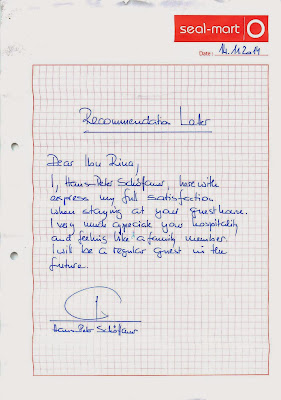 seal-mart
Date: 14.11.2014
Recommendation Letter
Dear Ibu Rina,
I, Hans-Peter Schöfauer, herewith
express my full satisfaction
when staying at your guesthouse.
I very much appreciate your hospitality
and feeling like a family member.
I will be a regular guest in the
future.
Hans-Peter Schöfauer